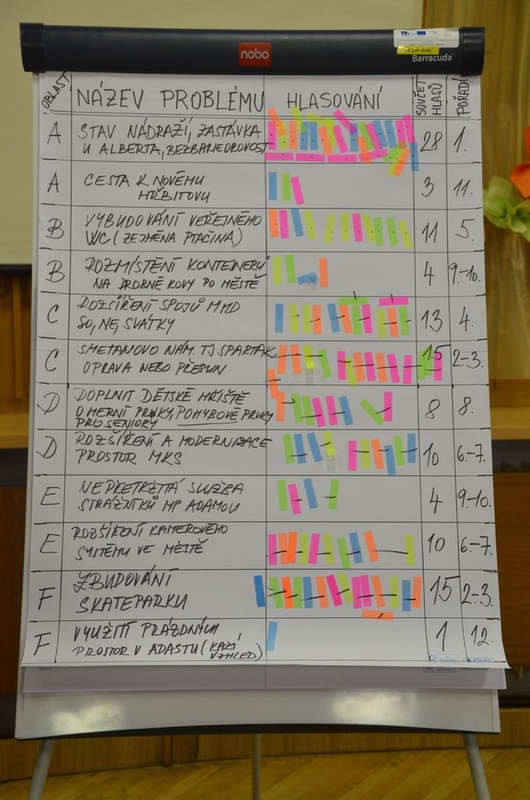 nobo
Barracuda
OBLAST NÁZEV PROBLÉMU HLASOVÁNÍ SOUČET HLASŮ POŘADÍ
A STAV NÁDRAŽÍ, ZASTÁVKA 28 1.
U ALBERTA, BEZBARIÉROVOST
A CESTA K NOVÉMU 3 11.
HŘBITOVU
B VYBUDOVÁNÍ VEŘEJNÉHO 11 5.
WC (ZEJMÉNA PTAČINA)
B ROZMÍSTĚNÍ KONTEJNERŮ 4 9.-10.
NA DROBNÉ KOVY PO MĚSTĚ
C ROZŠÍŘENÍ SPOJŮ MHD 13 4.
SO, NE, SVÁTKY
C SMETANOVO NÁM. TJ SPARTAK 15 2.-3.
OPRAVA NEBO PŘESUN
D DOPLNIT DĚTSKÉ HŘIŠTĚ 8 8.
O HERNÍ PRVKY, POHYBOVÉ PRVKY
PRO SENIORY
D ROZŠÍŘENÍ A MODERNIZACE 10 6.-7.
PROSTOR MKS
E NEPŘETRŽITÁ SLUŽBA 4 9.-10.
STRÁŽNÍKŮ MP ADAMOV
E ROZŠÍŘENÍ KAMEROVÉHO 10 6.-7.
SYSTÉMU VE MĚSTĚ
F ZBUDOVÁNÍ 15 2.-3.
SKATEPARKU
F VYUŽITÍ PRÁZDNÝCH 1 12.
PROSTOR V ADASTU (KAZÍ
VZHLED)